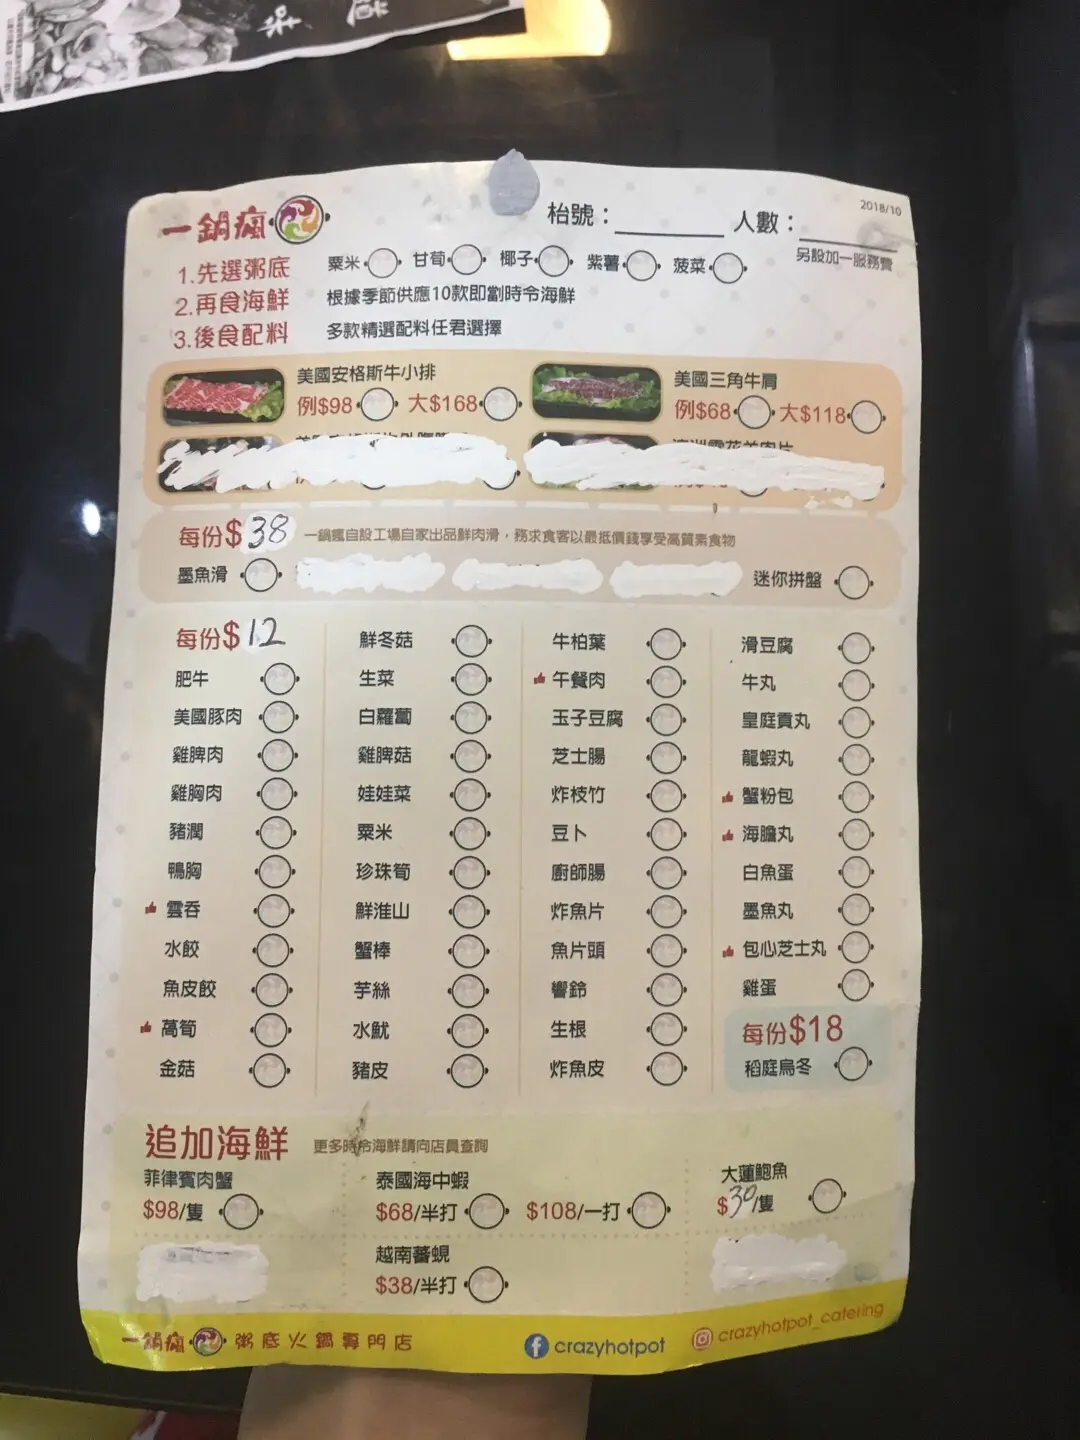 一鍋瘋
枱號：
人數：
2018/10
另設加一服務費
1.先選粥底
粟米 甘荀 椰子 紫薯 菠菜
2.再食海鮮
根據季節供應10款即劏時令海鮮
3.後食配料
多款精選配料任君選擇
美國安格斯牛小排
例$98 大$168
美國三角牛肩
例$68 大$118
每份$38
一鍋瘋自設工場自家出品鮮肉滑，務求食客以最抵價錢享受高質素食物
墨魚滑
迷你拼盤
每份$12
肥牛
美國豚肉
雞脾肉
雞胸肉
豬潤
鴨胸
雲吞
水餃
魚皮餃
萵筍
金菇
鮮冬菇
生菜
白蘿蔔
雞脾菇
娃娃菜
粟米
珍珠筍
鮮淮山
蟹棒
芋絲
水魷
豬皮
牛柏葉
午餐肉
玉子豆腐
芝士腸
炸枝竹
豆卜
廚師腸
炸魚片
魚片頭
響鈴
生根
炸魚皮
滑豆腐
牛丸
皇庭貢丸
龍蝦丸
蟹粉包
海膽丸
白魚蛋
墨魚丸
包心芝士丸
雞蛋
每份$18
稻庭烏冬
追加海鮮
更多時令海鮮請向店員查詢
菲律賓肉蟹
$98/隻
泰國海中蝦
$68/半打 $108/一打
大蓮鮑魚
$30/隻
越南蕃蜆
$38/半打
一鍋瘋 粥底火鍋專門店
crazyhotpot
crazyhotpot_catering